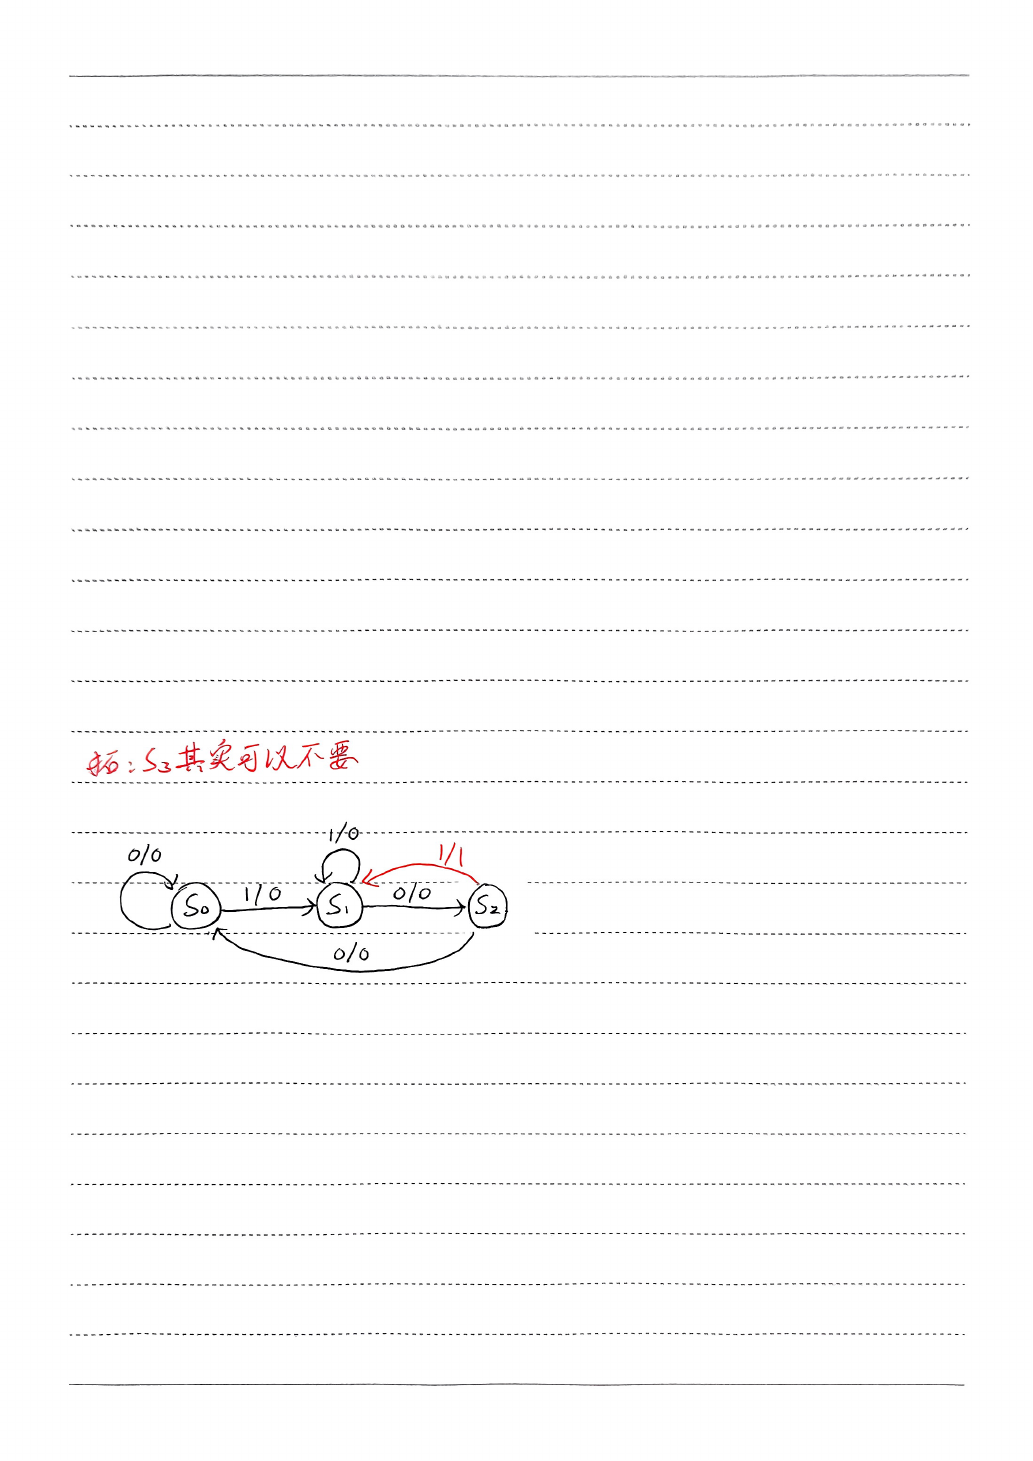 : S3其实可以不要
1/0
0/0
1/1
S0
1/0
S1
0/0
S2
0/0